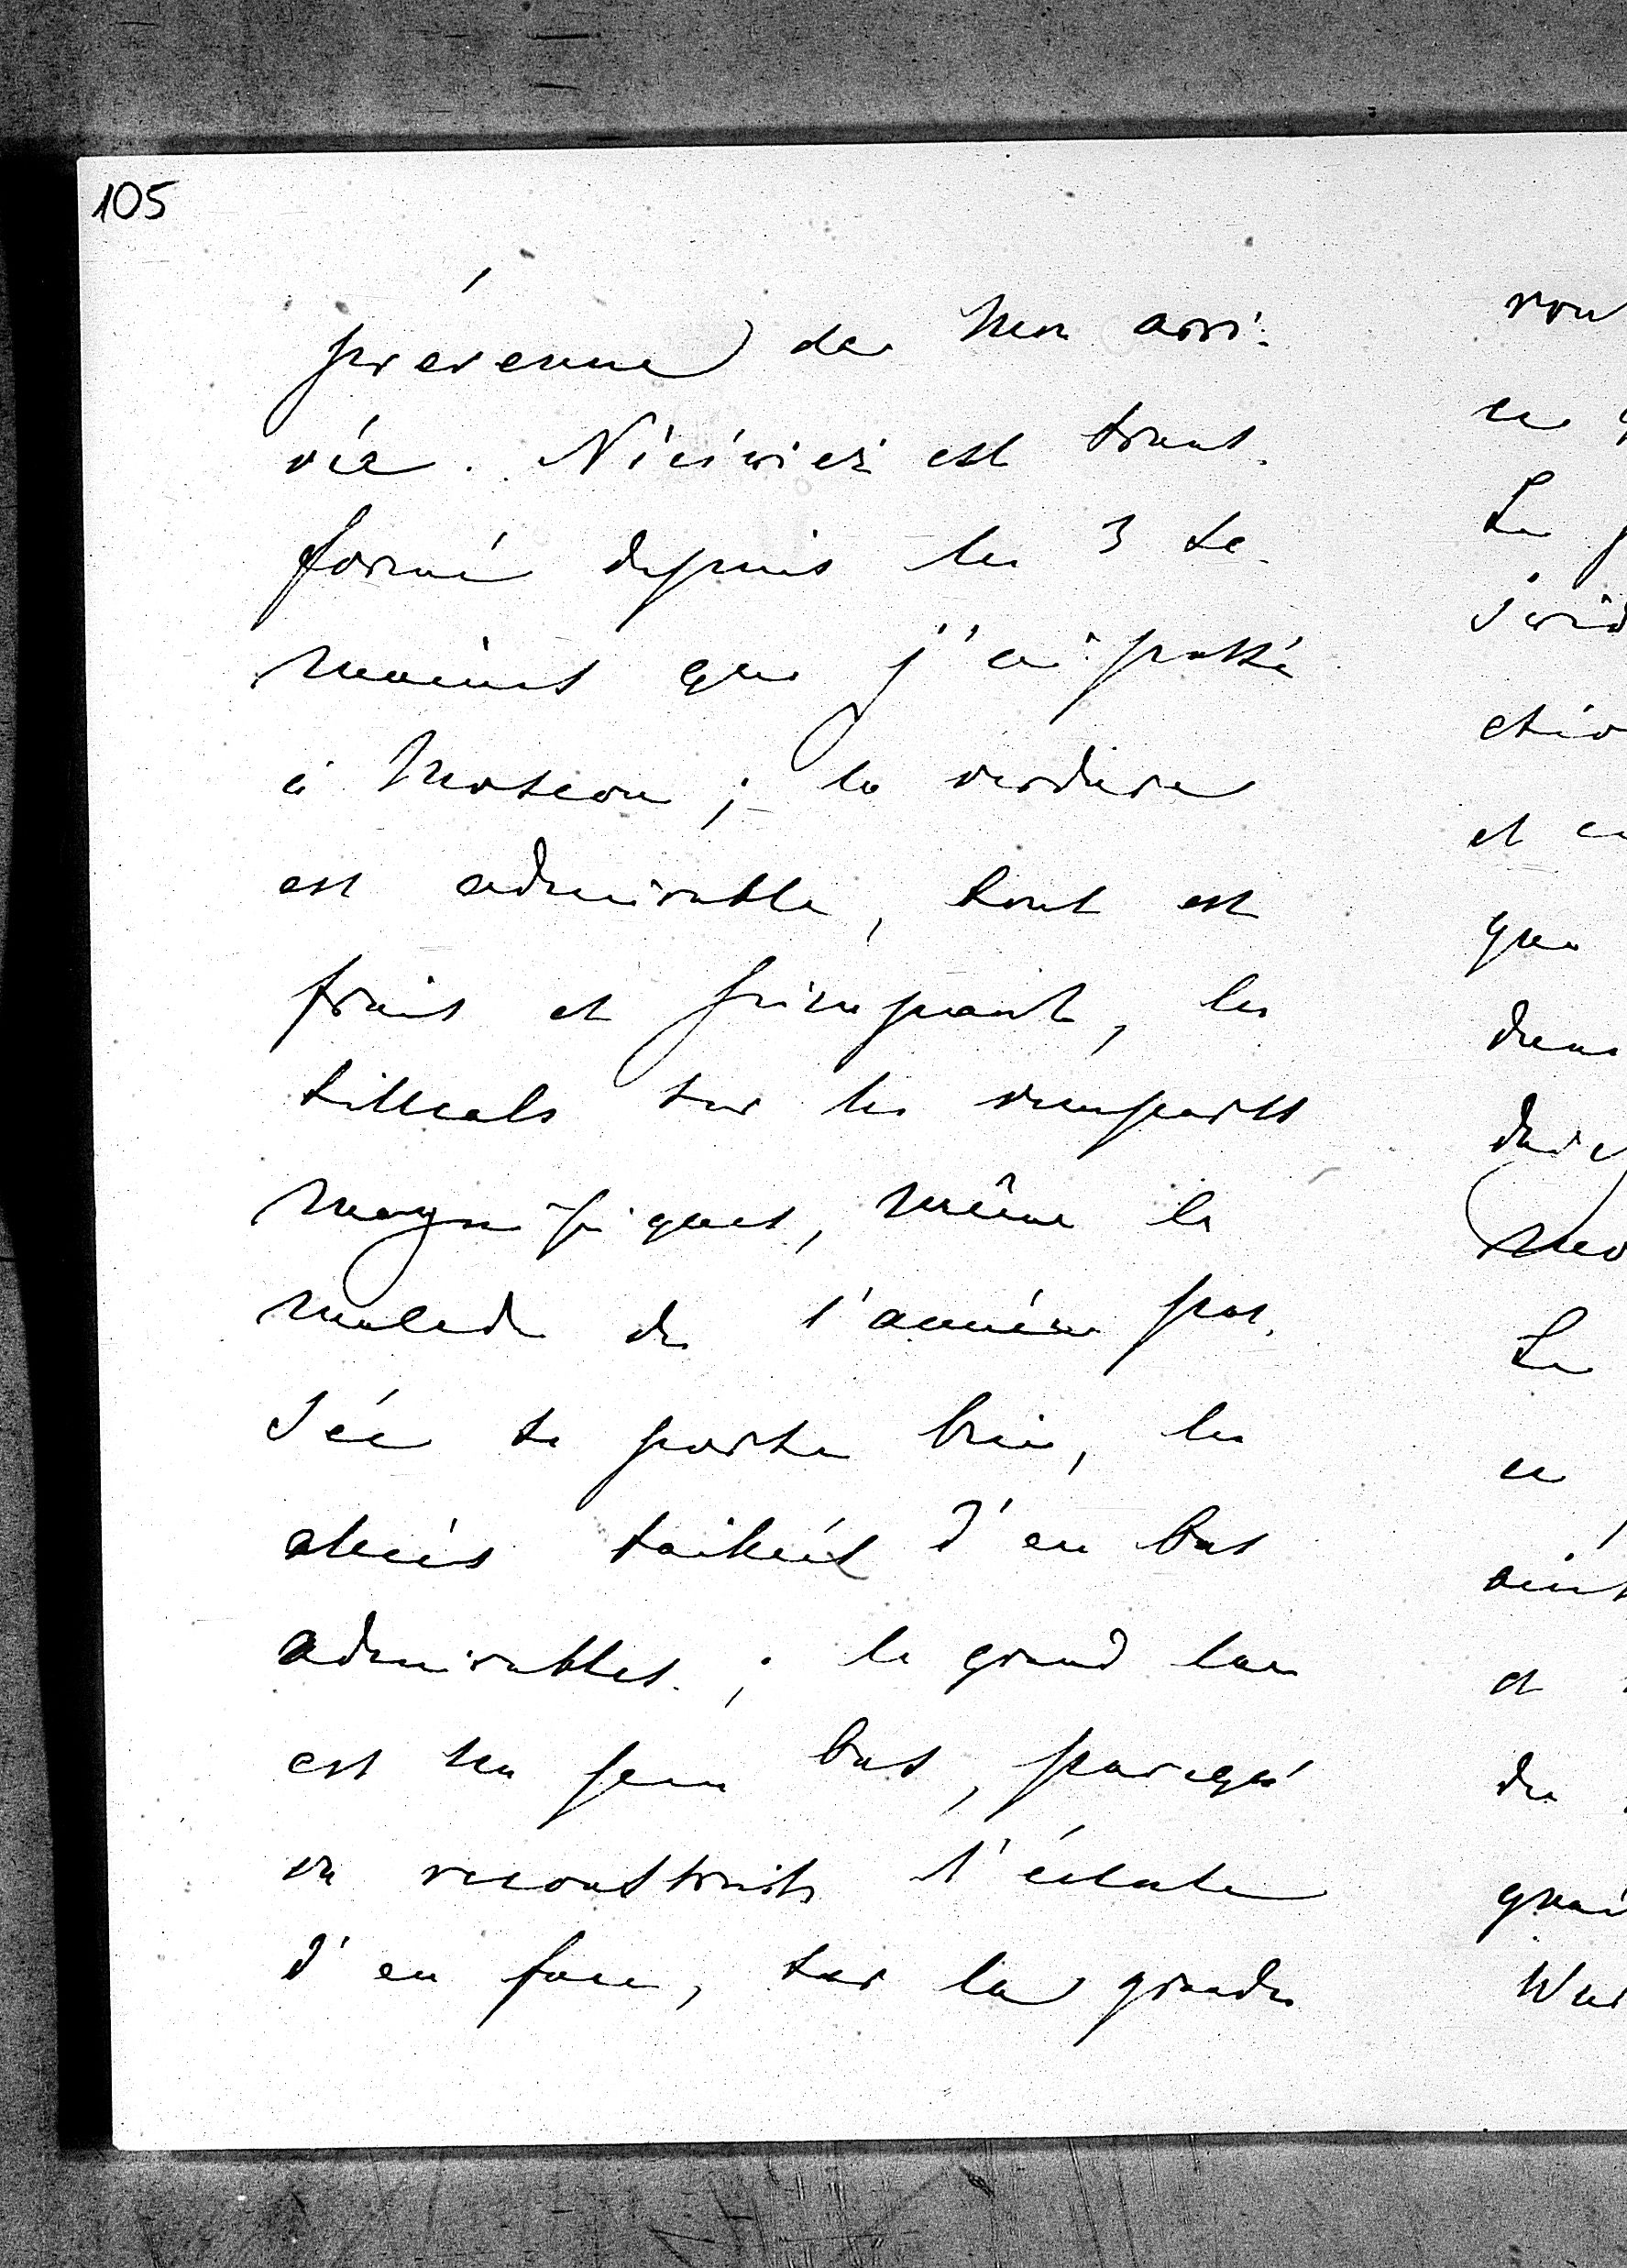 105
prévenue de mon arri-
vée. Nieśwież est trans-
formé depuis les 3 se-
maines que j'ai passé
à Moscou ; la verdure
est admirable, tout est
frais et grimpant, les
tilleuls sur les remparts
magnifiques, même le
malade de l'année pas-
sée se porte bien, les
taillées d'en bas
admirables ; le grand lac
est un peu bas, parcequ'
on reconstruit l'écluse
d'en face, sur la grande
en
Le
et
que
dans
Le
en
et
du